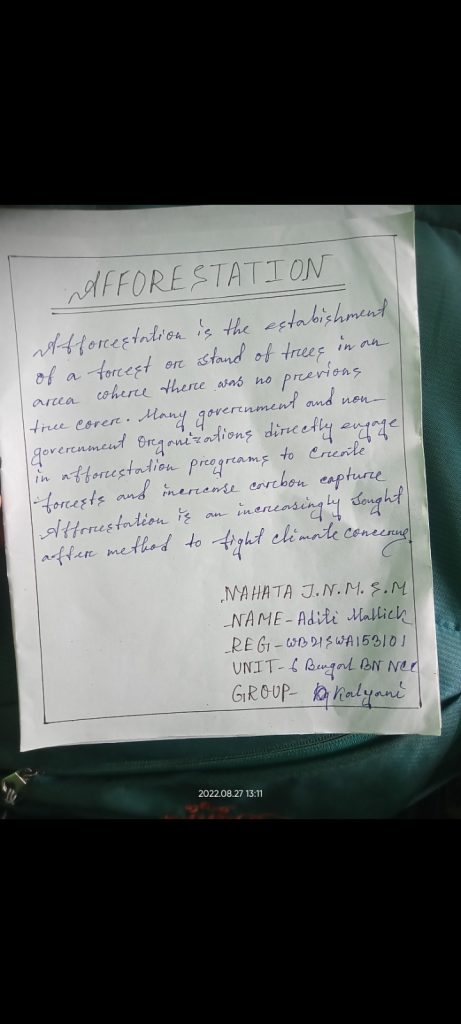 AFFORESTATION
Afforestation is the estabishment
of a forest or stand of trees in an
area where there was no previous
tree cover. Many government and non-
government Organizations directly engage
in afforestation programs to Create
forests and increase carbon capture
Afforestation is an increasingly Sought
after method to fight climate concerns.
MAHATA J.N.M.S.M
NAME-Aditi Mallick
REGI-WB21SWA153101
UNIT-6 Bengal BN NCC
GROUP- Kalyani
2022.08.27 13:11